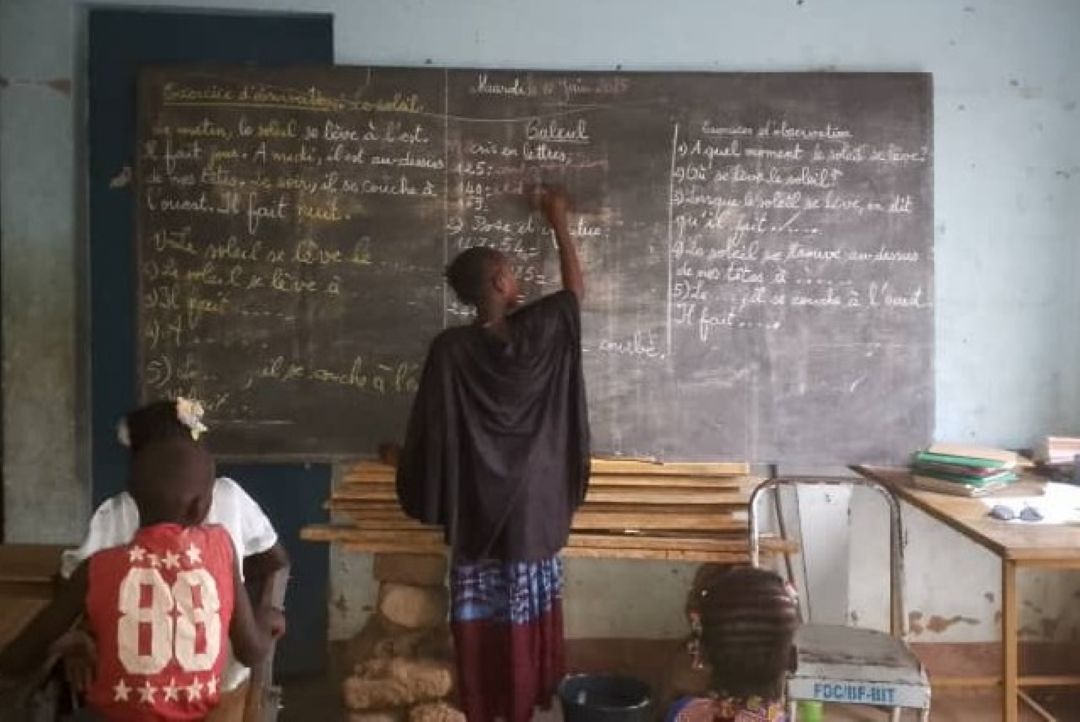 Exercice d'observation: Le soleil.
Le matin, le soleil se lève à l'est.
Il fait jour. A midi, il est au-dessus
de nos têtes. Le soir, il se couche à
l'ouest. Il fait nuit.
1) Le soleil se lève le ......
2) Le soleil se lève à
3) Il fait ......
4) A ......
5) Le ... , il se couche à l'
Mardi le Juin
Calcul
Ecris en lettres,
125:
140:
2) Pose et
54=
5=
courbe,
Exercices d'observation
1) A quel moment le soleil se lève?
2) Où se lève le soleil?
3) Lorsque le soleil se lève, on dit
qu'il fait ......
4) Le soleil se trouve au-dessus
de nos têtes à ......
5) Le ... , il se couche à l'ouest.
Il fait .....
88
FDC/BF-BIT